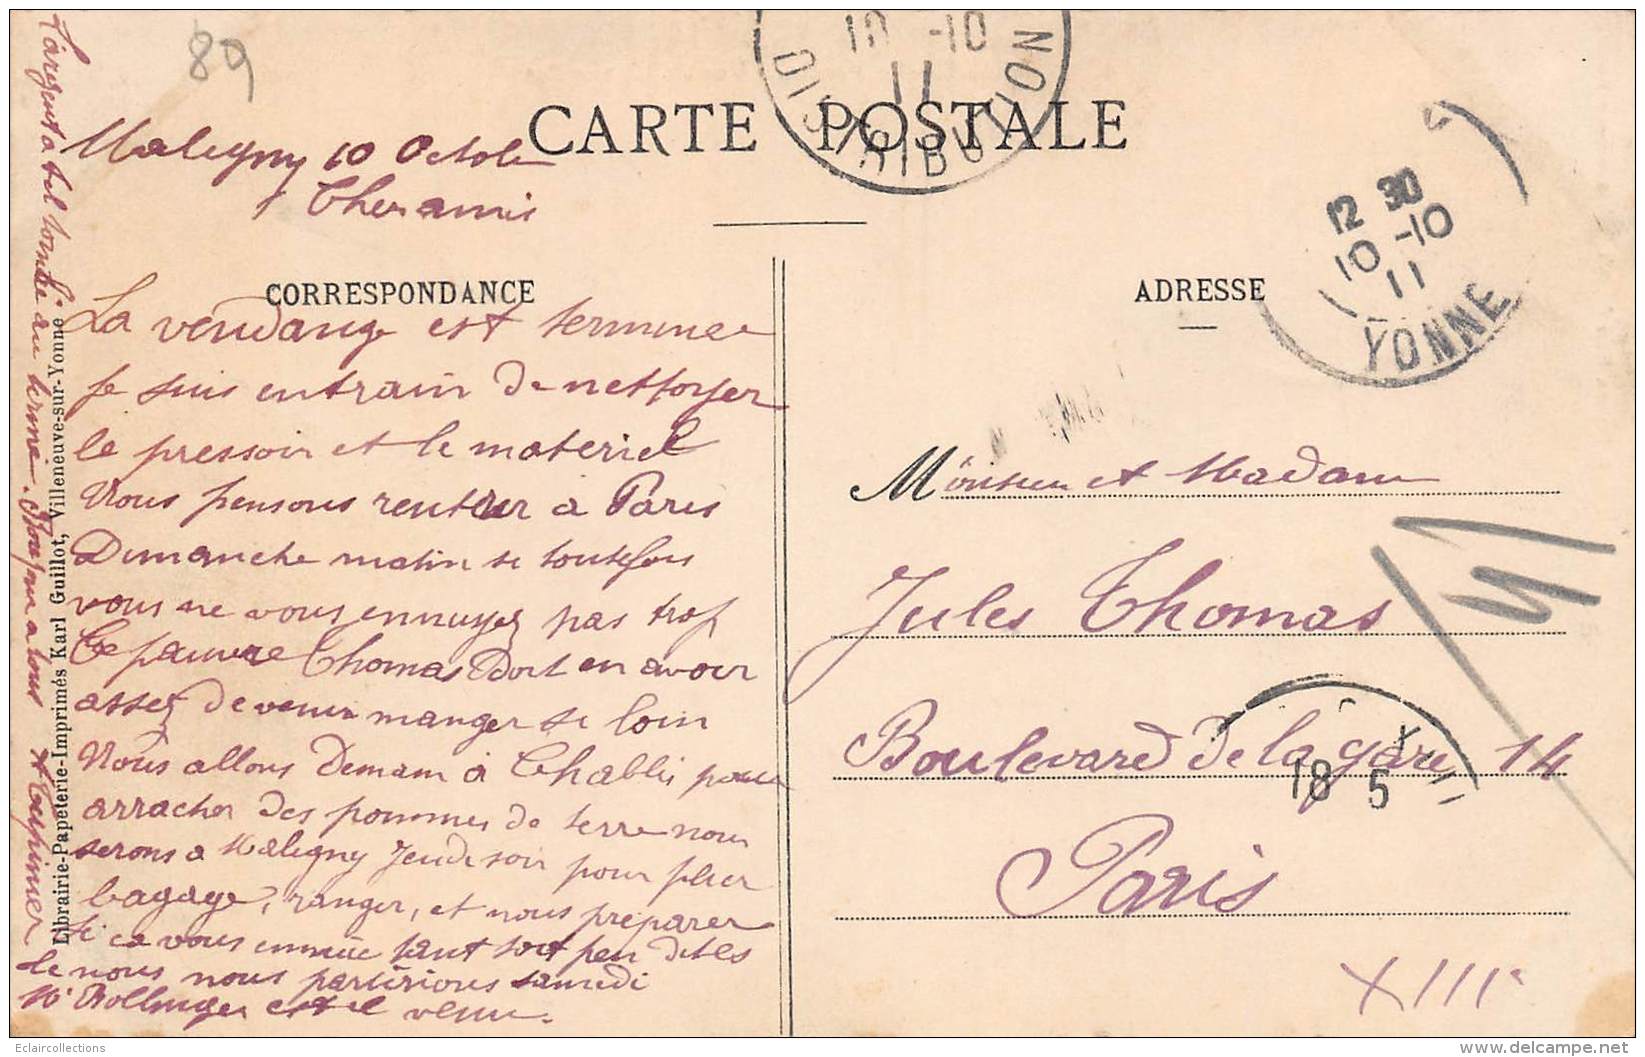 89
10 -10
11
DISTRIBUTION
CARTE POSTALE
Maligny 10 Octobre
Chers amis
12 30
10 -10
11
YONNE
CORRESPONDANCE
ADRESSE
La vendange est terminee
Je suis entrain de nettoyer
le pressoir et le materiel
Nous pensons rentrer à Paris
Dimanche matin si toutefois
vous ne vous ennuyez pas trop
Ce pauvre Thomas Doit en avoir
assez de venir manger si loin
Nous allons Demain à Chablis pour
arracher des pommes de terre nous
serons a Maligny Jeudi soir pour plier
bagage, ranger, et nous preparer
Si ca vous ennuie tant soit peu dites
le nous nous partirions samedi
Mr Bollinger est il venu.
L'argent a tel tombé au terme. Bonjour a tous
Librairie-Papeterie-Imprimés Karl Guillot, Villeneuve-sur-Yonne
Monsieur et Madame
Jules Thomas
Boulevard de la gare 14
18 5
Paris
XIIIe
Eclaircollections
delcampe.net